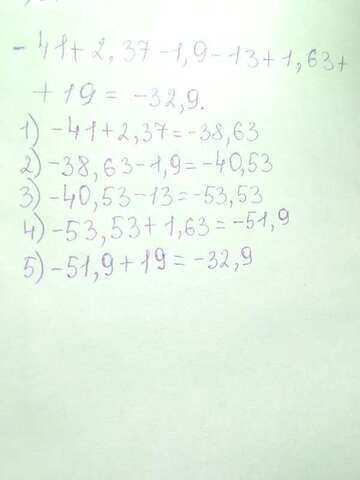 - 41 + 2,37 - 1,9 - 13 + 1,63 +
+ 19 = -32,9.
1) -41 + 2,37 = -38,63
2) -38,63 - 1,9 = -40,53
3) -40,53 - 13 = -53,53
4) -53,53 + 1,63 = -51,9
5) -51,9 + 19 = -32,9